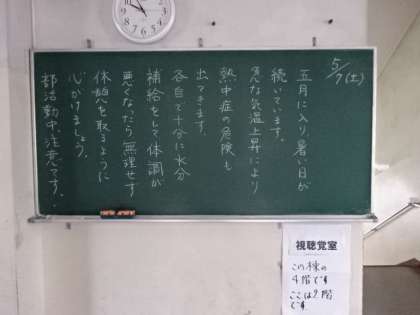 5/7(土)
五月に入り、暑い日が
続いています。
急な気温上昇により
熱中症の危険も
出てきます。
各自で十分に水分
補給をして体調が
悪くなったら無理せず
休憩を取るように
心がけましょう。
部活動中、注意です。
視聴覚室
この棟の
4階です
ここは2階
です